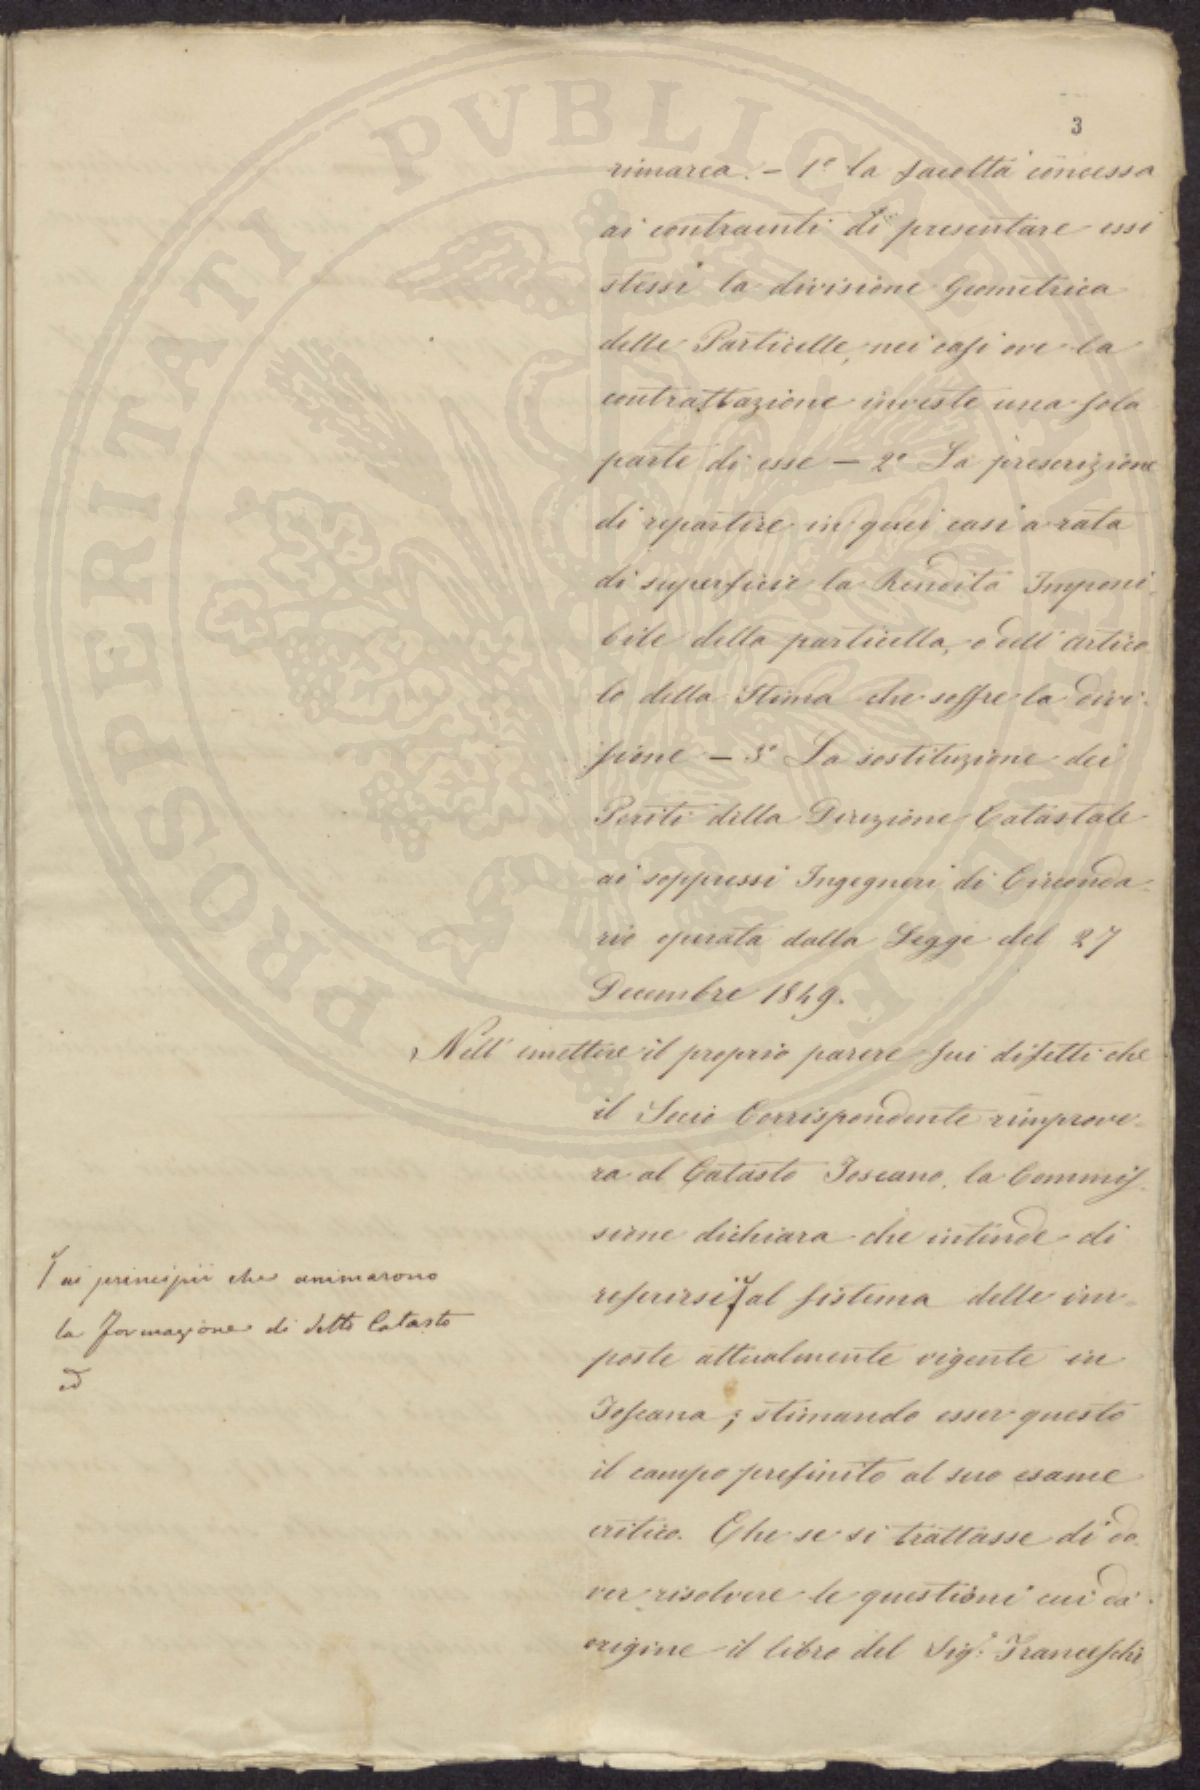 3
rimarca. – 1° la facoltà concessa
ai contraenti di presentare essi
stessi la divisione Geometrica
delle Particelle, nei casi ove la
contrattazione investe una sola
parte di esse – 2° La prescrizione
di repartire in quei casi a rata
di superficie la Rendita Imponi-
bile della particella, o dell'artico
lo della Stima che soffre la divi-
sione – 3° La sostituzione dei
Periti della Direzione Catastale
ai soppressi Ingegneri di Circonda-
rio operata dalla Legge del 27
Decembre 1849.
Nell'emettere il proprio parere sui difetti che
il Socio Corrispondente rimprove-
ra al Catasto Toscano, la Commis-
sione dichiara che intende di
referirsi al sistema delle im-
poste attualmente vigente in
Toscana; stimando esser questo
il campo prefinito al suo esame
critico. Che se si trattasse di do
ver risolvere le questioni cui dà
origine il libro del Sig.r Franceschi
ai principii che animarono
la formazione di detto Catasto
ed
PROSPERITATI PVBLICAE AVGENDAE